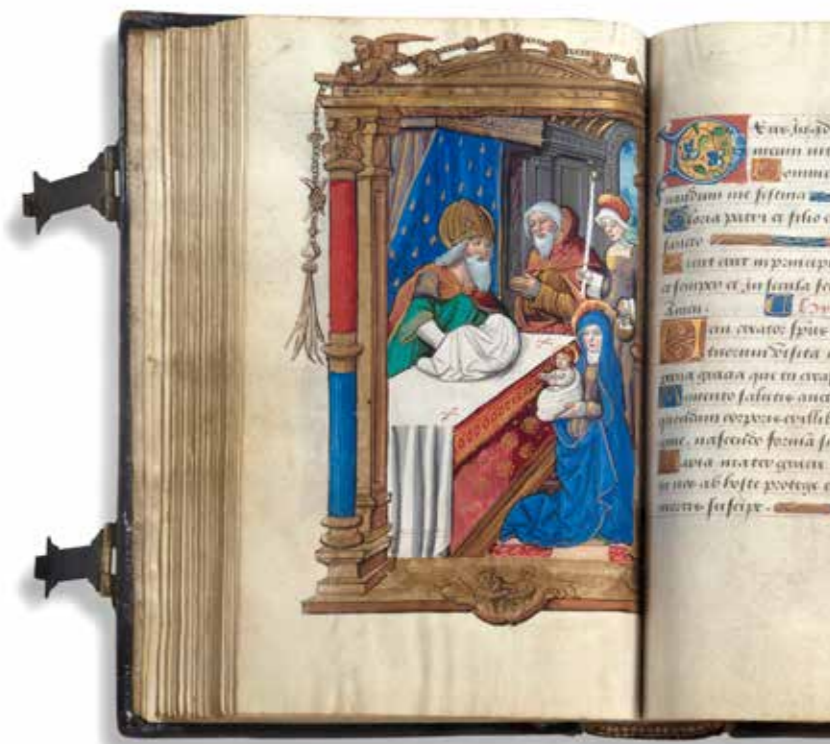 Deus in ad
meum int
Domine
iuuandum me festina
Gloria patri et filio e
sancto
Sicut erat in principi
et semper et in secula sec
Amen.
Veni creator spiri
tuorum visita
perna gracia que tu crea
Memento salutis auct
quondam corporis ex illib
gine, nascendo formã s
Maria mater gracie
tu nos ab hoste protege e
mortis suscipe.